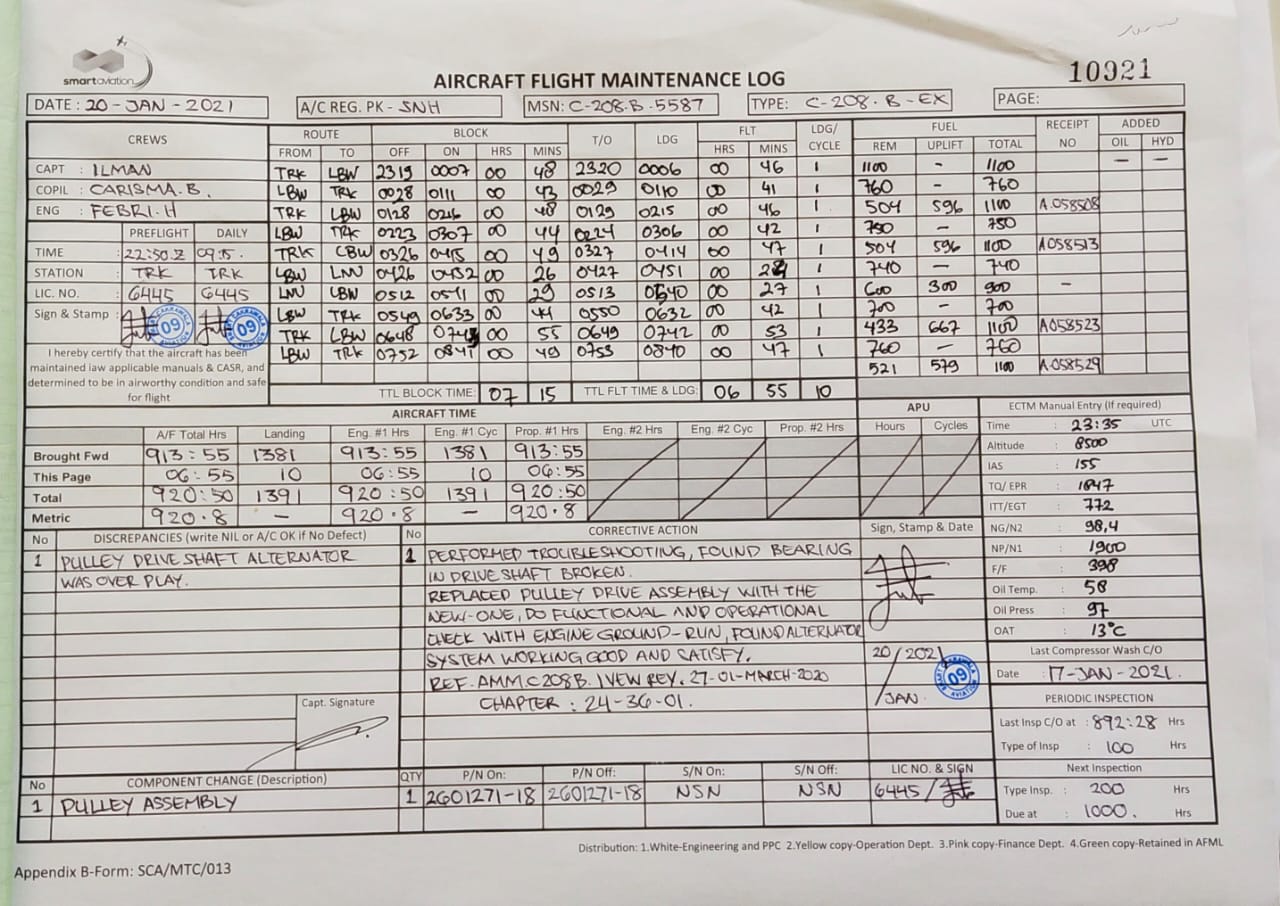 smartaviation
AIRCRAFT FLIGHT MAINTENANCE LOG
10921
DATE : 20 - JAN - 2021 A/C REG. PK - SNH MSN: C-208.B.5587 TYPE: C-208.B-EX PAGE:
CREWS ROUTE BLOCK T/O LDG FLT LDG/ CYCLE FUEL RECEIPT NO ADDED
FROM TO OFF ON HRS MINS HRS MINS REM UPLIFT TOTAL OIL HYD
CAPT : ILMAN TRK LBW 2319 0007 00 48 2320 0006 00 46 1 1100 - 1100 - -
COPIL : CARISMA.B. LBW TRK 0028 0111 00 43 0029 0110 00 41 1 760 - 760
ENG : FEBRI.H TRK LBW 0128 0216 00 48 0129 0215 00 46 1 504 596 1100 A.058508
LBW TRK 0223 0307 00 44 0224 0306 00 42 1 750 - 750
PREFLIGHT DAILY
TIME : 22:50.Z 09.5. TRK LBW 0326 0415 00 49 0327 0414 00 47 1 504 596 1100 A058513
STATION : TRK TRK LBW LNU 0426 0452 00 26 0427 0451 00 24 1 740 - 740
LIC. NO. : 6445 6445 LNU LBW 0512 0541 00 29 0513 0540 00 27 1 600 300 900 -
Sign & Stamp : 09 09 LBW TRK 0549 0633 00 44 0550 0632 00 42 1 700 - 700
TRK LBW 0648 0743 00 55 0649 0742 00 53 1 433 667 1100 A058523
LBW TRK 0752 0841 00 49 0753 0840 00 47 1 760 - 760
521 579 1100 A.058529
I hereby certify that the aircraft has been
maintained iaw applicable manuals & CASR, and
determined to be in airworthy condition and safe
for flight
TTL BLOCK TIME: 07 15 TTL FLT TIME & LDG: 06 55 10
AIRCRAFT TIME APU
A/F Total Hrs Landing Eng. #1 Hrs Eng. #1 Cyc Prop. #1 Hrs Eng. #2 Hrs Eng. #2 Cyc Prop. #2 Hrs Hours Cycles
Brought Fwd 913:55 1381 913:55 1381 913:55
This Page 06:55 10 06:55 10 06:55
Total 920:50 1391 920:50 1391 920:50
Metric 920.8 - 920.8 - 920.8
ECTM Manual Entry (If required)
Time : 23:35 UTC
Altitude : 8500
IAS : 155
TQ/ EPR : 1847
ITT/EGT : 772
NG/N2 : 98,4
NP/N1 : 1900
F/F : 398
Oil Temp. : 58
Oil Press : 97
OAT : 13°C
Last Compressor Wash C/O
Date : 17-JAN-2021.
PERIODIC INSPECTION
Last Insp C/O at : 892:28 Hrs
Type of Insp : 100 Hrs
Next Inspection
Type Insp. : 200 Hrs
Due at : 1000. Hrs
No DISCREPANCIES (write NIL or A/C OK if No Defect)
1 PULLEY DRIVE SHAFT ALTERNATOR
WAS OVER PLAY.
Capt. Signature
No CORRECTIVE ACTION Sign, Stamp & Date
1 PERFORMED TROUBLESHOOTING, FOUND BEARING
IN DRIVE SHAFT BROKEN.
REPLACED PULLEY DRIVE ASSEMBLY WITH THE
NEW-ONE, DO FUNCTIONAL AND OPERATIONAL
CHECK WITH ENGINE GROUND-RUN, FOUND ALTERNATOR
SYSTEM WORKING GOOD AND SATISFY.
REF. AMM C208B. REV. 27-01-MARCH-2020
CHAPTER : 24-36-01.
20/ 2021
/JAN.
09
No COMPONENT CHANGE (Description) QTY P/N On: P/N Off: S/N On: S/N Off: LIC NO. & SIGN
1 PULLEY ASSEMBLY 1 2601271-18 2601271-18 NSN NSN 6445 /
Distribution: 1.White-Engineering and PPC 2.Yellow copy-Operation Dept. 3.Pink copy-Finance Dept. 4.Green copy-Retained in AFML
Appendix B-Form: SCA/MTC/013